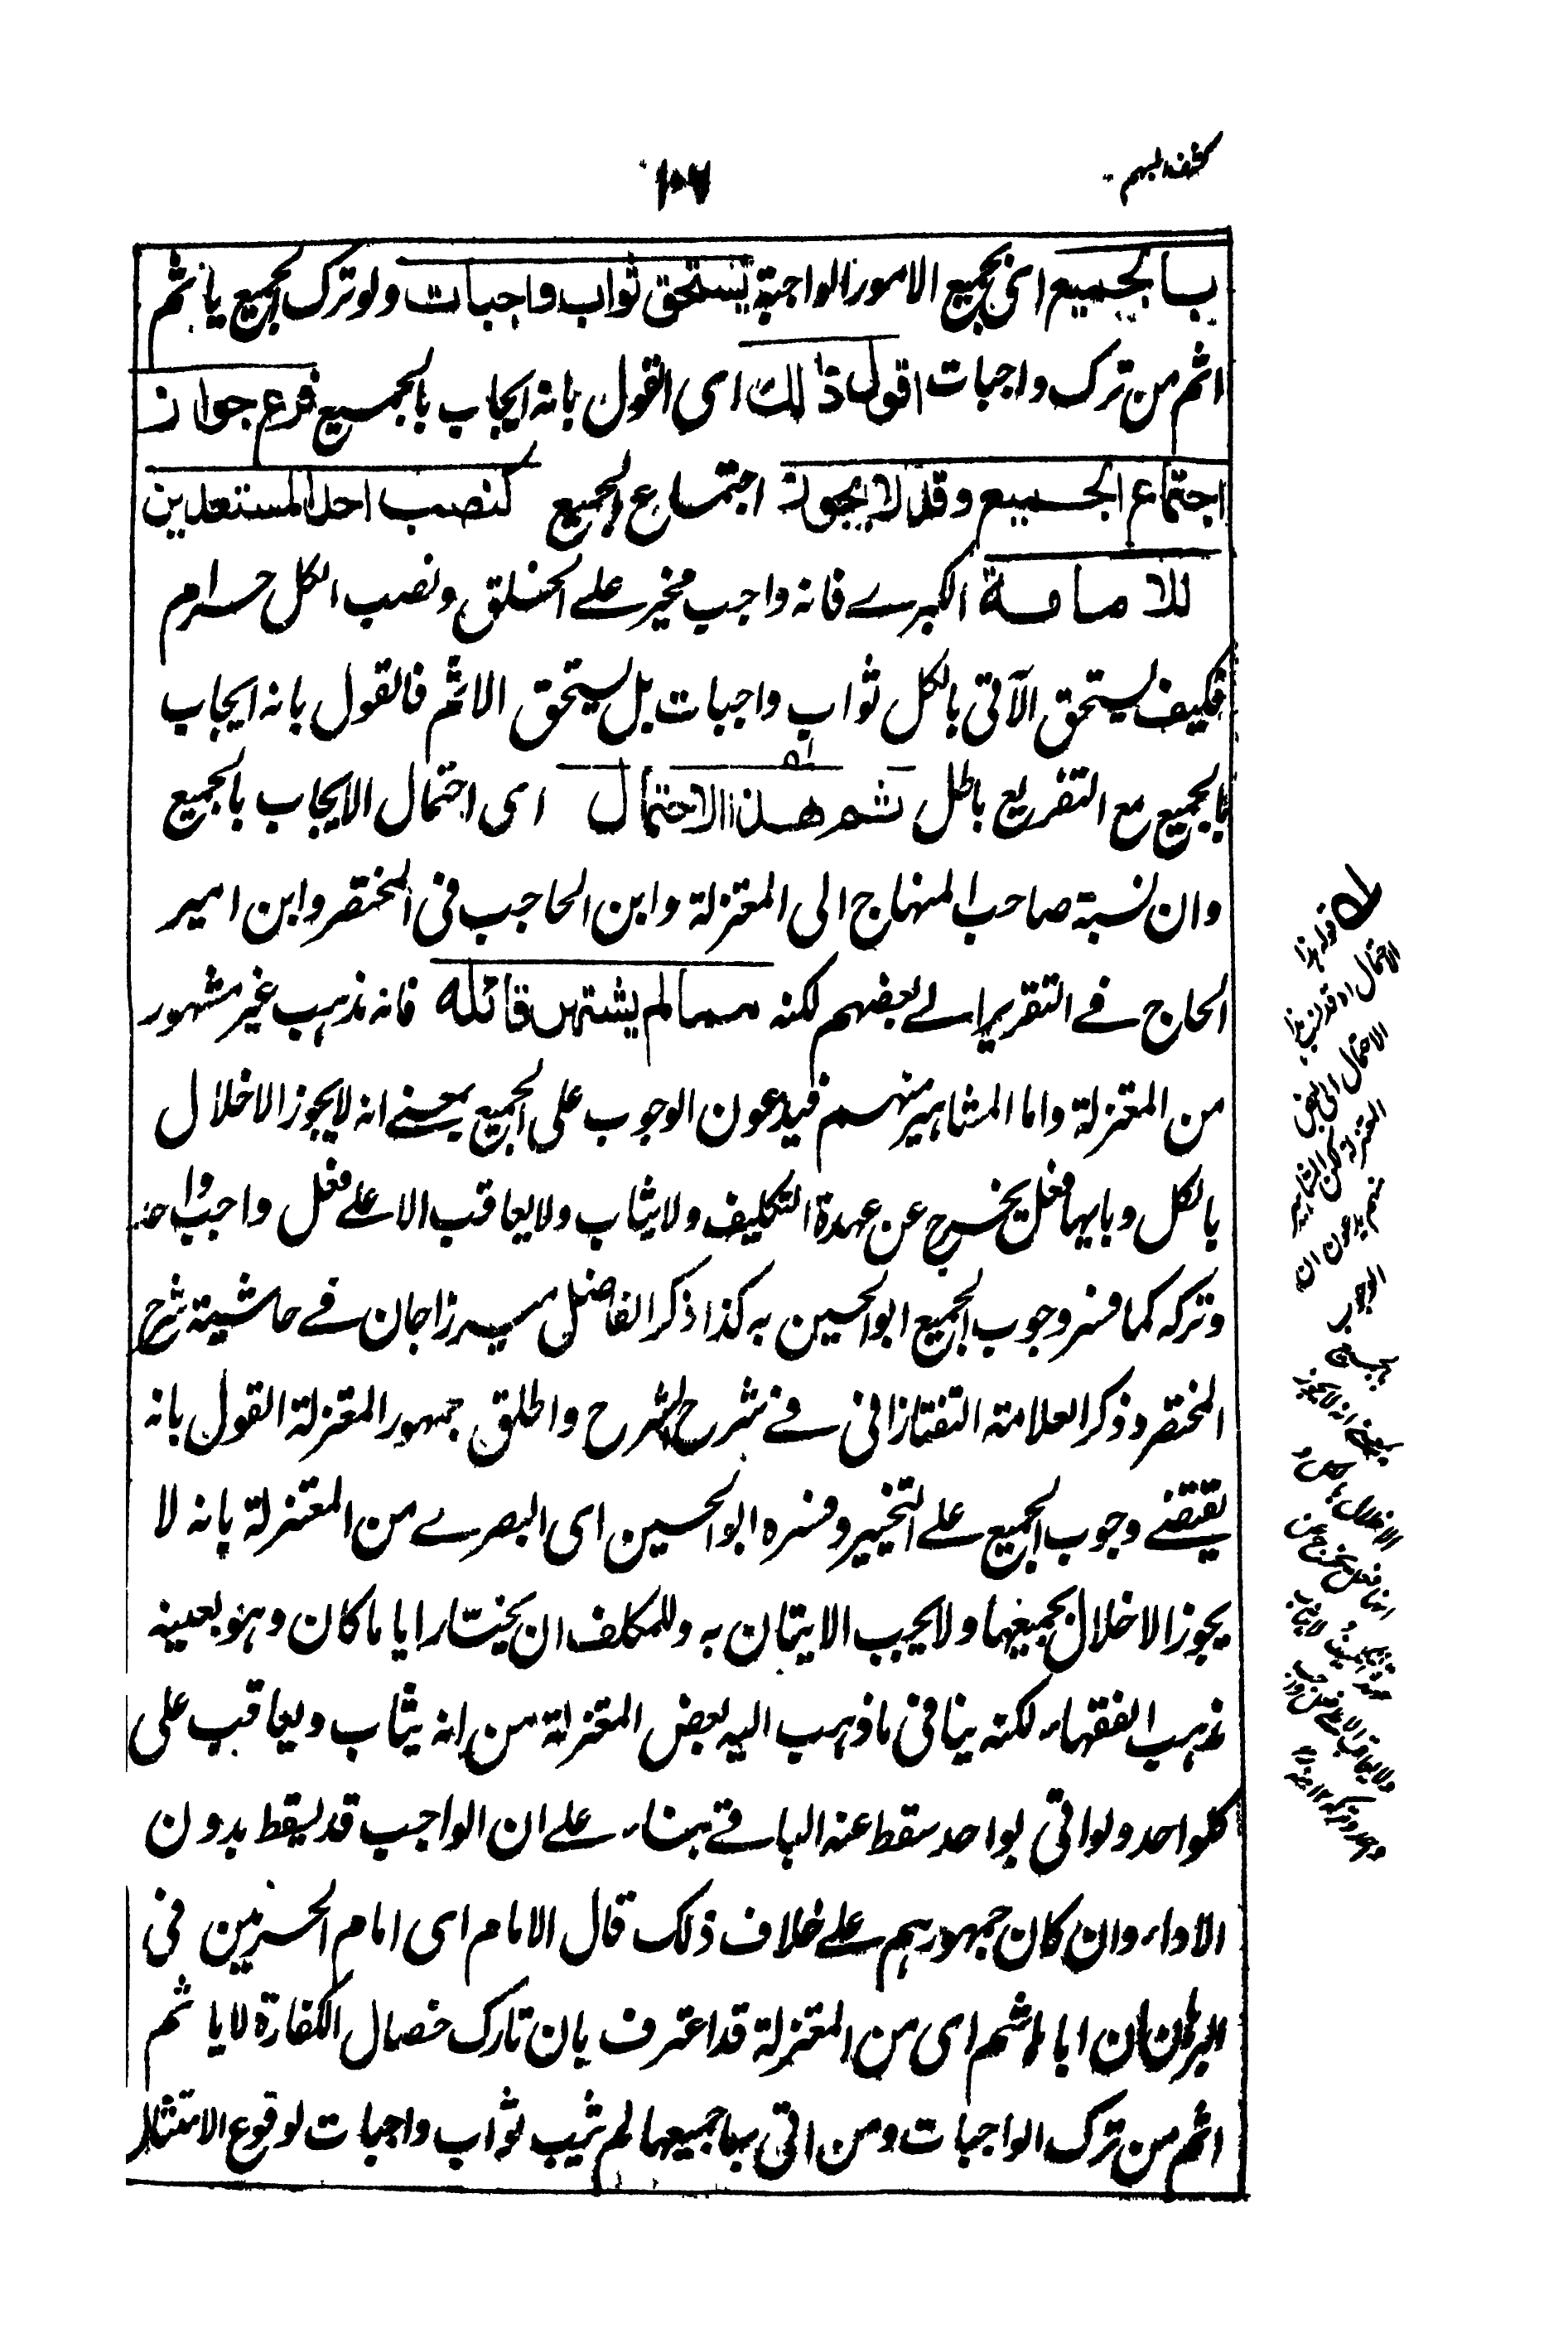 كشف المبهم
۱۰۶
بالجميع اى بجميع الامور الواجبة يستحق ثواب واجبات ولو ترك الجميع ياثم
اثم من ترك واجبات اقول ذلك اى القول بانه ايجاب بالجميع فرع جواز
اجتماع الجميع وقد لا يجوز اجتماع الجميع كنصب احد المستعدين
للامامة الكبرے فانه واجب مخير علے الخلق ونصب الكل حرام
فكيف يستحق الآتى بالكل ثواب واجبات بل يستحق الاثم فالقول بانه ايجاب
بالجميع مع التفريع باطل ثم هذا الاحتمال اى احتمال الايجاب بالجميع
وان نسبة صاحب المنهاج الى المعتزلة وابن الحاجب فى المختصر وابن امير
الحاج فے التقرير الے بعضهم لكنه مما لم يشتهر قائله فانه مذهب غير مشهور
من المعتزلة واما المشاهير منهم فيدعون الوجوب على الجميع بمعنے انه لا يجوز الاخلال
بالكل وبايها فعل يخرج عن عهدة التكليف ولا يثاب ولا يعاقب الا علے فعل واجب واحد
وتركه كما فسر وجوب الجميع ابو الحسين به كذا ذكر الفاضل ميرزا جان فے حاشية شرح
المختصر وذكر العلامة التفتازانى فے شرح الشرح واطلق جمهور المعتزلة القول بانه
يقتضے وجوب الجميع علے التخيير وفسره ابو الحسين اى البصرے من المعتزلة بانه لا
يجوز الاخلال بجميعها ولا يجب الايتان به وللمكلف ان يختار ايا ما كان وهو بعينه
مذهب الفقهاء لكنه ينافى ما ذهب اليه بعض المعتزلة من انه يثاب ويعاقب على
كلواحد ولو اتى بواحد سقط عنه الباقے بناء علے ان الواجب قد يسقط بدون
الاداء وان كان جمهورهم علے خلاف ذلك قال الامام اى امام الحرمين فى
البرهان ان ابا هاشم اى من المعتزلة قد اعترف بان تارك خصال الكفارة لا ياثم
اثم من ترك الواجبات ومن اتى بها جميعها لم يثب ثواب واجبات لوقوع الامتثال
قوله هذا
الاحتمال اه قد نسب هذا
الاحتمال الى بعض
المعتزلة لكن المشاهير
منهم يدعون ان
الوجوب
بالجميع
بمعنے انه لا يجوز
الاخلال بالكل و
ايها فعل يخرج عن
عهدة التكليف ولا يثاب
ولا يعاقب الا علے فعل واجب
واحد وتركه ۱۲ منه